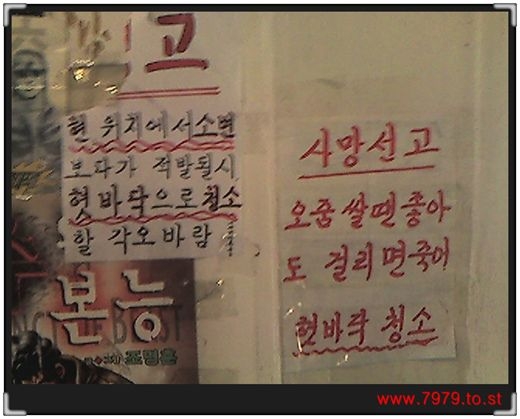 경고
현 위치에서 소변
보다가 적발될시
혓바닥으로 청소
할 각오 바람
본능
조명훈
사망선고
오줌쌀땐좋아
도 걸리면죽어
혓바닥 청소
www.7979.to.st